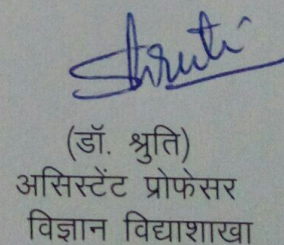 Shruti
(डॉ. श्रुति)
असिस्टेंट प्रोफेसर
विज्ञान विद्याशाखा